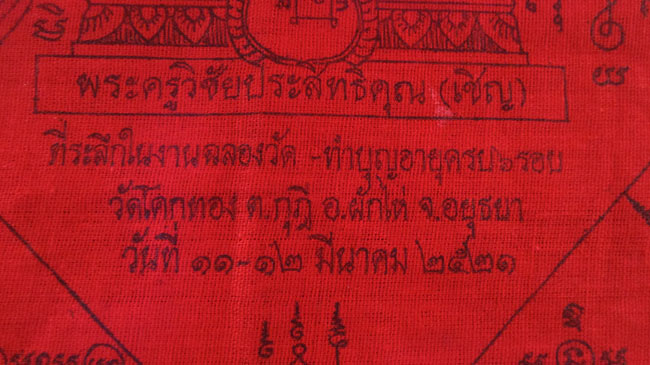 พระครูวิชัยประสิทธิคุณ (เชิญ)
ที่ระลึกในงานฉลองวัด -ทำบุญอายุครบ๖รอบ
วัดโคกทอง ต.กุฎี อ.ผักไห่ จ.อยุธยา
วันที่ ๑๑-๑๒ มีนาคม ๒๕๒๑